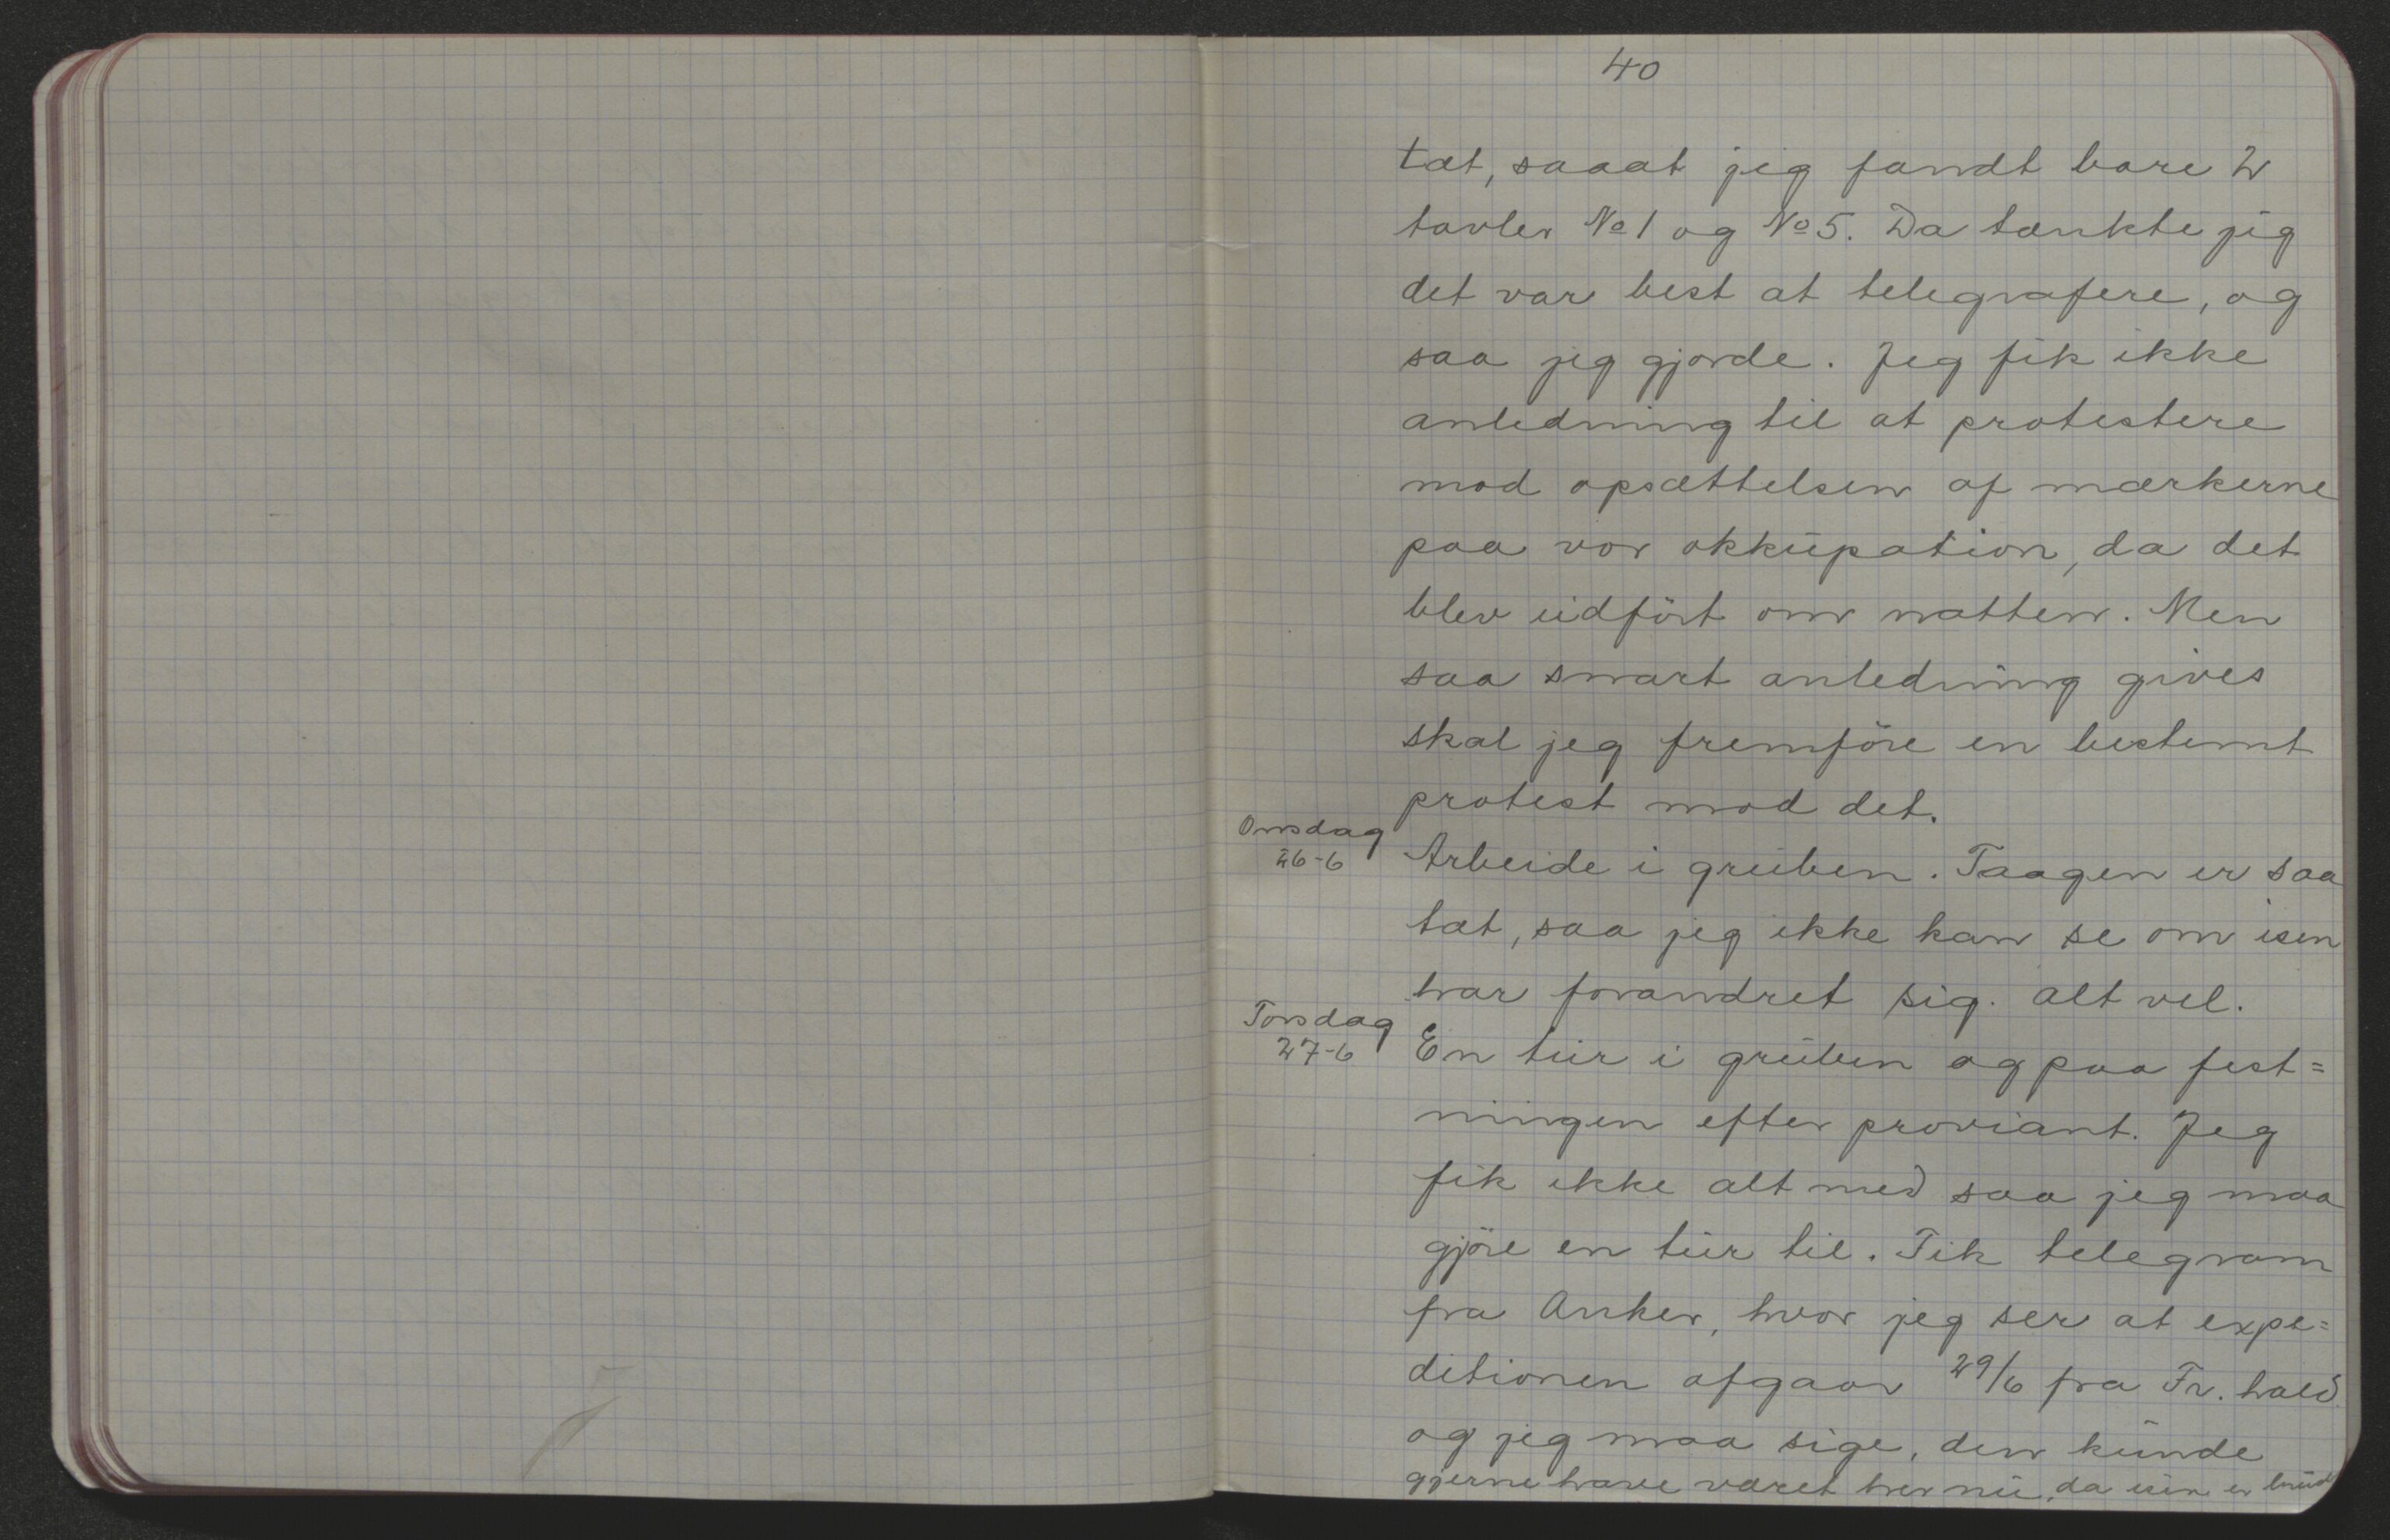 40
tæt, saaat jeg fandt bare 2
tavler № 1 og № 5. Da tænkte jeg
det var best at telegrafere, og
saa jeg gjorde. Jeg fik ikke
anledning til at protestere
mod opsættelsen af mærkerne
paa vor okkupation, da det
blev udført om natten. Men
saa snart anledning gives
skal jeg fremføre en bestemt
protest mod det.
Onsdag
26-6
Arbeide i gruben. Taagen er saa
tæt, saa jeg ikke kan se om isen
har forandret sig. Alt vel.
Torsdag
27-6
En tur i gruben og paa fest=
ningen efter proviant. Jeg
fik ikke alt med saa jeg maa
gjøre en tur til. Fik telegram
fra Anker, hvor jeg ser at expe=
ditionen afgaar 29/6 fra Fr. hald.
og jeg maa sige, den kunde
gjerne have været her nu, da isen er